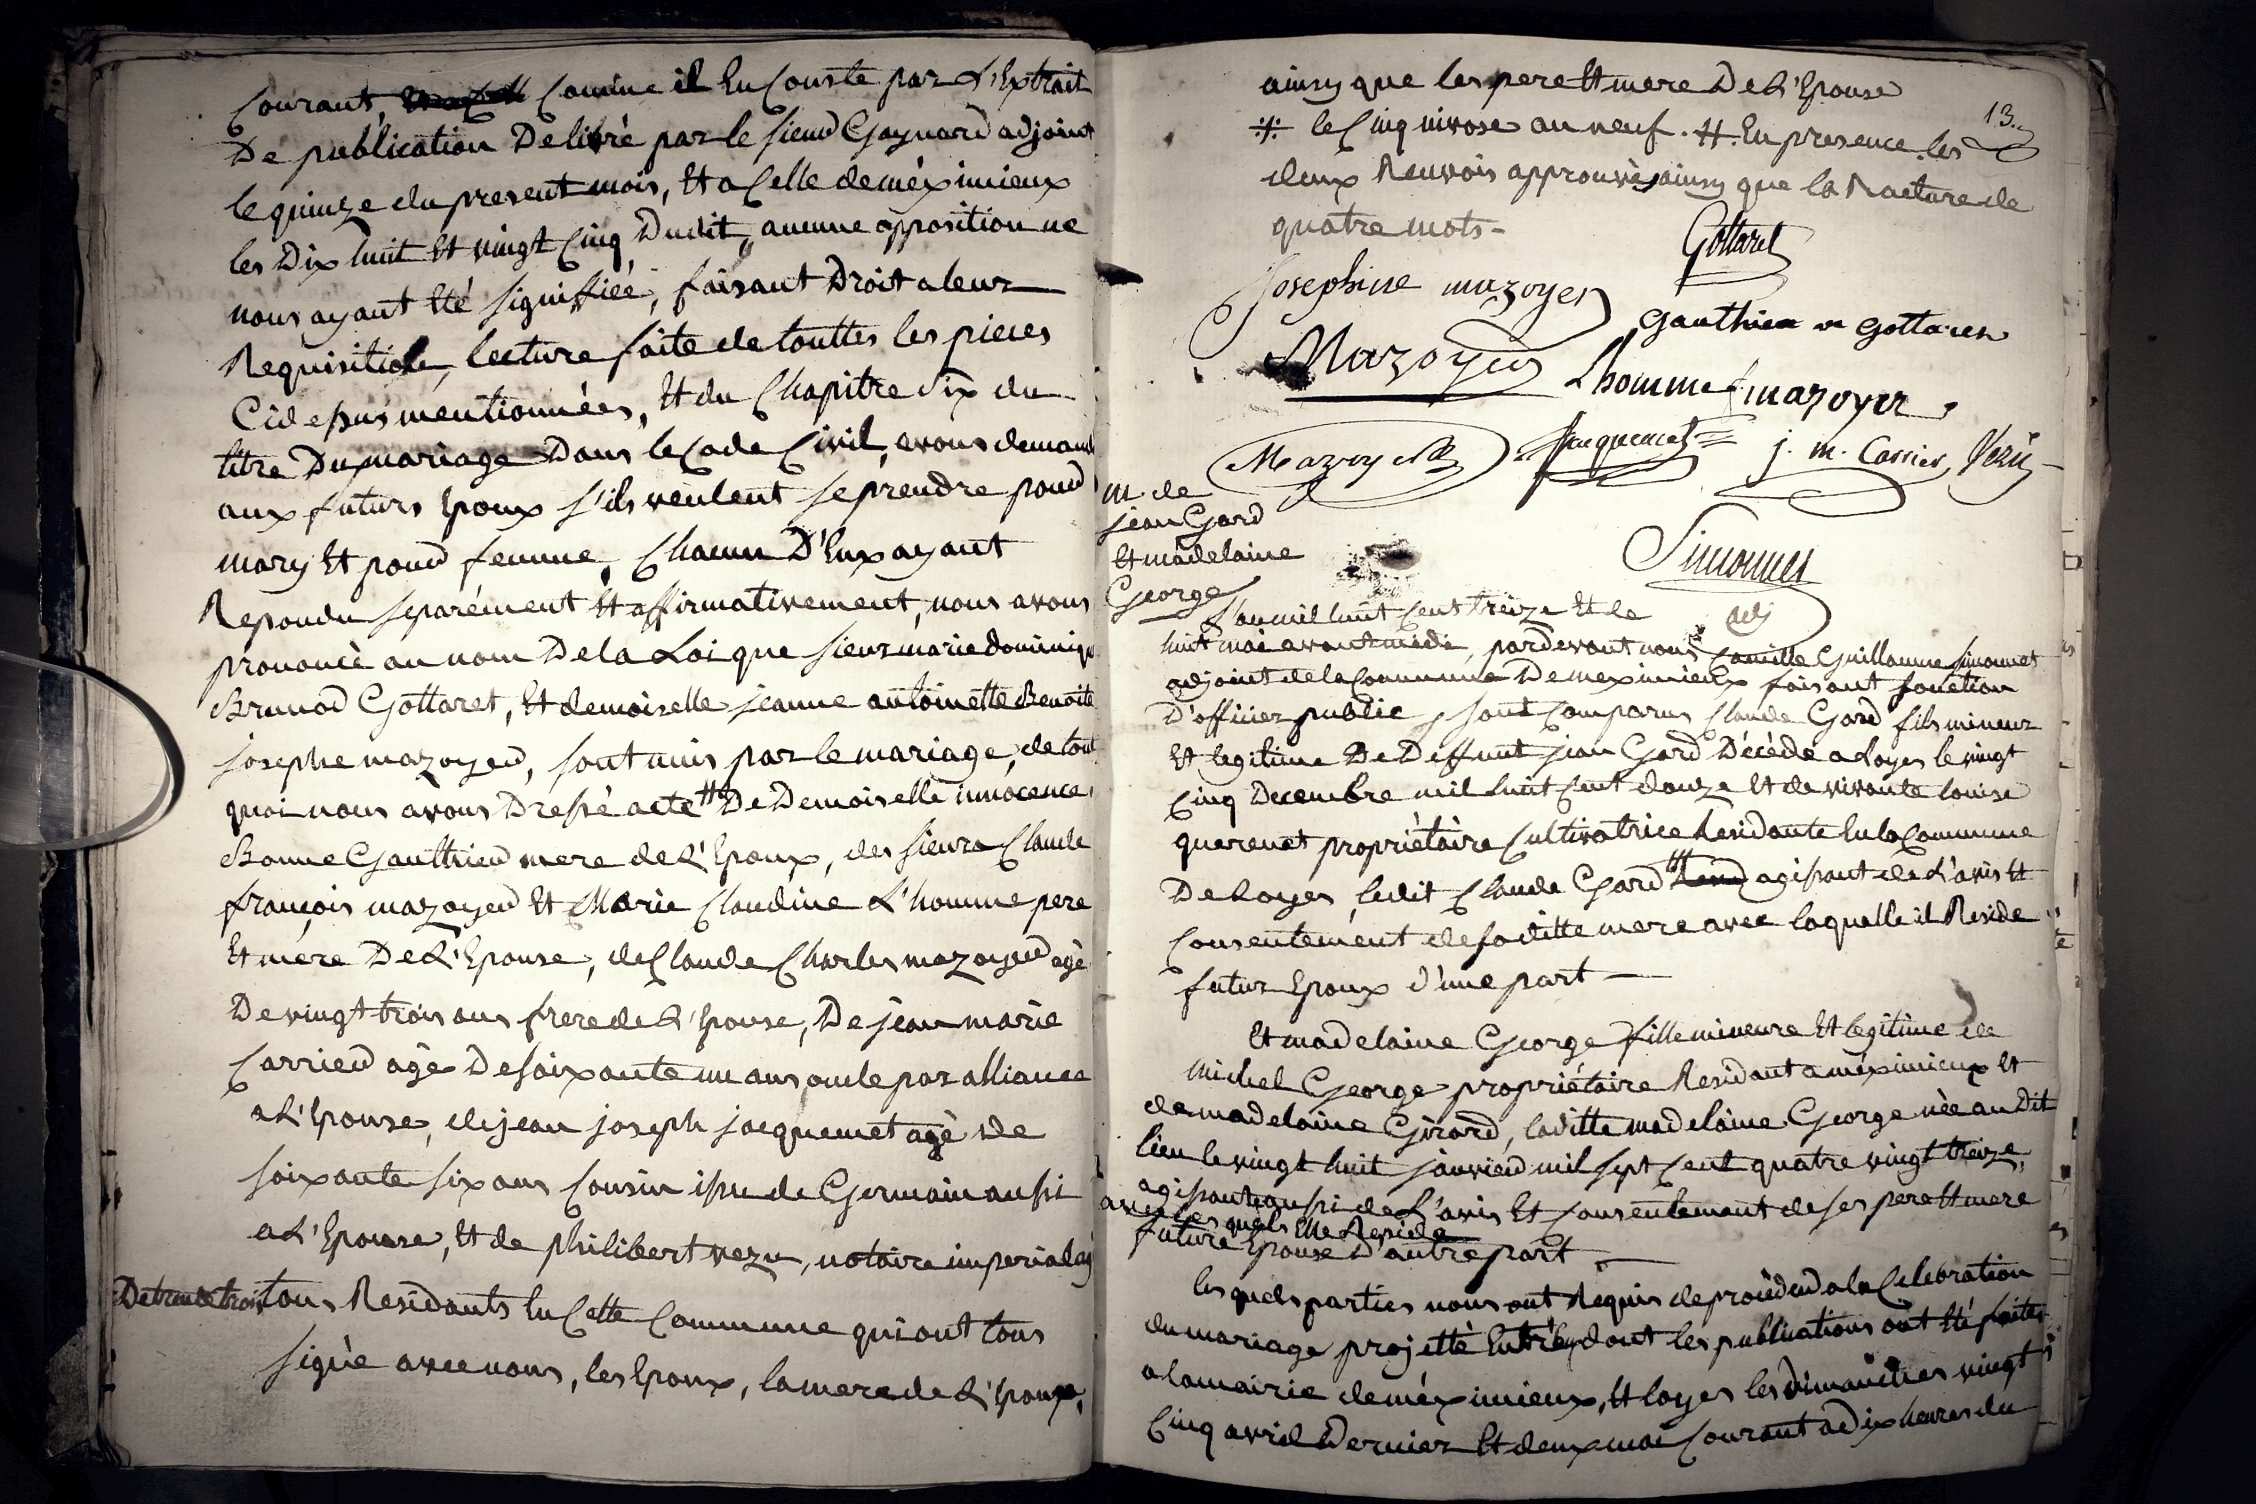 Courant, Comme il En Conste par L'Extrait
De publication Delibré par le sieur Goynard adjoint
le quinze du present mois, Et a Celle de méximieux
les Dix huit Et vingt Cinq Dudit, aucune opposition ne
nous ayant Eté signiffiéé, faisant Droit a leur
Requisition, lecture faite de touttes les pieces
Cidessus mentionnées, Et du Chapitre Six du
titre Du mariage Dans le Code Civil, avons demandé
aux futurs Epoux s'ils veulent se prendre pour
mary Et pour femme, Chacun D'Eux ayant
Repondu separément Et affirmativement, nous avons
prononcè au nom De la Loi que sieur marie dominique
Brunod Gottaret, Et demoiselle jeanne antoinette Benoite
josephe mazoyer, sont unis par le mariage, de tout
quoi nous avons Dressé acte # De Demoiselle innocence
Bonne Gauthier mere de L'Epoux, des sieurs Claude
françois mazoyer Et Marie Claudine L'homme pere
Et mere De L'Epouse, de Claude Charles mazoyer agè
De vingt trois ans frere de L'Epouse, De jean marie
Carrier agè De soixante un ans oncle par alliance
a L'Epouse, de jean joseph jacquemet agè de
soixante six ans Cousin issu de Germain aussi
a L'Epouse, Et de philibert vezu, notaire imperial agé
De trente trois tous Residants En Cette Commune qui ont tous
signè avec nous, les Epoux, la mere de L'Epoux,
ainsy que les pere Et mere De L'Epouse
13.
:/: le Cinq nivose an neuf. #. En presence. les
deux Renvois approuvés ainsy que la Rature de
quatre mots -
Gottaret
Josephine mazoyer
Gauthier Gottaret
Mazoyer
Lhomme f mazoyer
Mazoyer
Jacquemet
j. m. Carrier Vezu
m. de
jean Gard
Et madelaine
George
Simonnet
adj
L'an mil huit Cent treize Et le
huit mai avant midi, pardevant nous Camille Guillaume simonnet
adjoint de la Commune De meximieux faisant fonction
D'officier public, sont Comparus Claude Gard fils mineur
Et legitime De Deffunt jean Gard Décédé a Loyes le vingt
Cinq Decembre mil huit Cent douze Et de vivante louise
querenet propriétaire Cultivatrice Residante En la Commune
De Loyes, ledit Claude Gard agissant de L'avis Et
Consentement de saditte mere avec laquelle il Reside
futur Epoux d'une part -
Et madelaine George fille mineure Et legitime de
michel George propriétaire Residant a méximieux Et
de madelaine Girard, laditte madelaine George née au Dit
lieu le vingt huit janvier mil sept Cent quatre vingt treize,
agissant aussi de L'avis Et Consentement de ses pere Et mere
avec les quels Elle Reside
future Epouse D'autre part -
les quels parties nous ont Requis de procèder a la Celebration
du mariage projetté Entr'eux dont les publications ont Eté faites
a la mairie de méximieux, Et loyes les dimanches vingt
Cinq avril Dernier Et deux mai Courant a Dix heures du